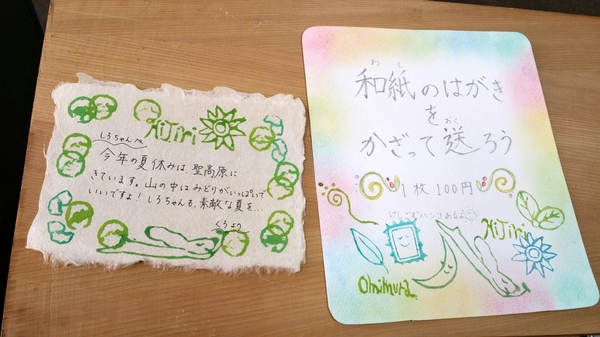 HiJiri
しろちゃんへ
今年の夏休みは、聖高原に
きています。山の中はみどりがいっぱいで
いいですよ！しろちゃんも、素敵な夏を…
くろより
わし
和紙のはがき
を
おく
かざって送ろう
1枚100円
けしごむハンコあるよ
HiJiri
Omimura